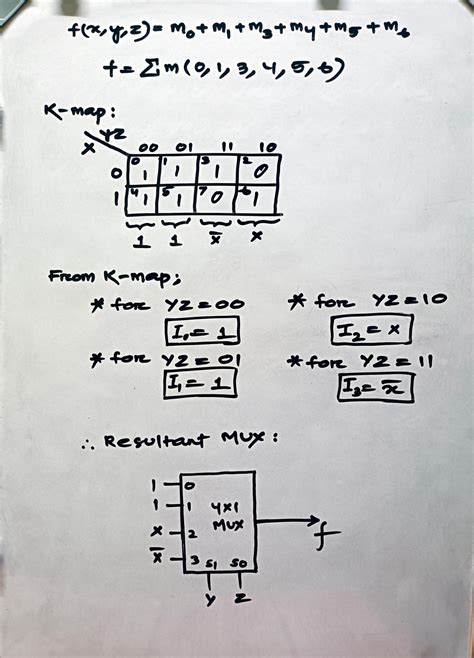 f(x,y,z) = m₀+m₁+m₃+m₄+m₅+m₆
f = Σm(0,1,3,4,5,6)
K-map:
YZ
X 00 01 11 10
0 0 1 1 1 3 1 2 0
1 4 1 5 1 7 0 6 1
1 1 x̅ x
From K-map;
* for YZ = 00 * for YZ = 10
I₀ = 1 I₂ = x
* for YZ = 01 * for YZ = 11
I₁ = 1 I₃ = x̅
∴ Resultant MUX:
1 0
1 1 4x1
x 2 MUX f
x̅ 3 S1 S0
Y Z